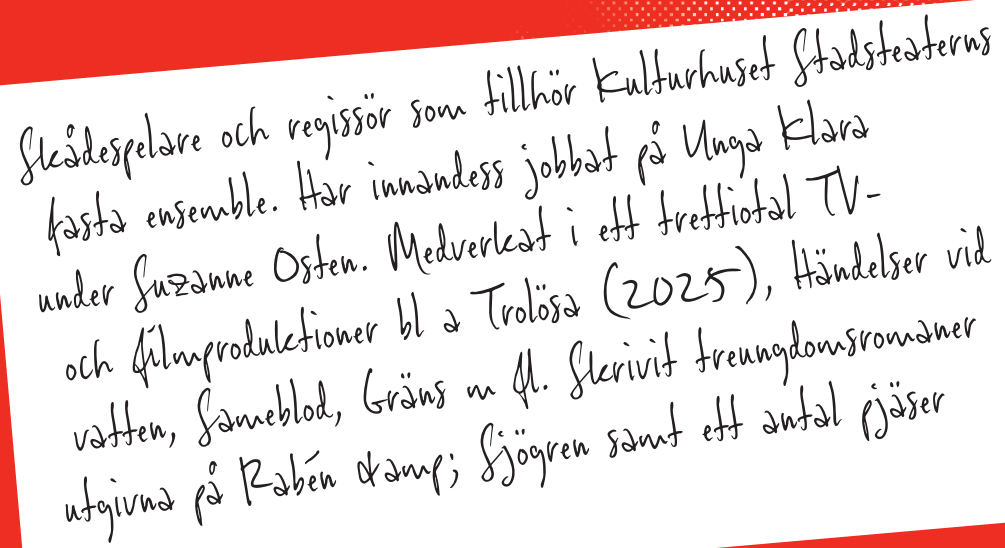 Skådespelare och regissör som tillhör Kulturhuset Stadsteaterns
fasta ensemble. Har innandess jobbat på Unga Klara
under Suzanne Osten. Medverkat i ett trettiotal TV-
och filmproduktioner bl a Trolösa (2025), Händelser vid
vatten, Sameblod, Gräns m fl. Skrivit treungdomsromaner
utgivna på Rabén &amp; Sjögren samt ett antal pjäser